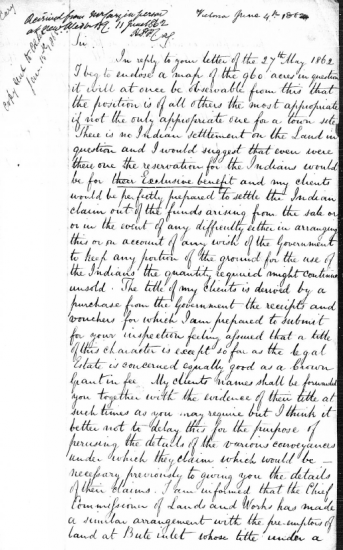 Received from Mr Cary in person
at New Westr B.C. 11 June 1862
Victoria June 4th 1862
Cary
Sir
In reply to your letter of the 27th May 1862
I beg to enclose a map of the 960 acres in question
it will at once be observable from this that
the position is of all others the most appropriate
if not the only appropriate one for a town site
There is no Indian settlement on the Land in
question and I would suggest that even were
there one the reservation for the Indians would
be for their Exclusive benefit and my clients
would be perfectly prepared to settle the Indian
claim out of the funds arising from the sale or
or in the event of any difficulty either in arranging
this or on account of any wish of the Government
to keep any portion of the ground for the use of
the Indians the quantity required might continue
unsold. The title of my clients is derived by a
purchase from the Government the receipts and
vouchers for which I am prepared to submit
for your inspection feeling assured that a title
of this character is except so far as the legal
Estate is concerned equally good as a Crown
Grant in fee. My clients names shall be forwarded
you together with the evidence of their title at
such times as you may require but I think it
better not to delay this for the purpose of
perusing the details of the various conveyances
under which they claim which would be
necessary previously to giving you the details
of their claims. I am informed that the Chief
Commissioner of Lands and Works has made
a similar arrangement with the pre-emptors of
land at Bute inlet whose title under a